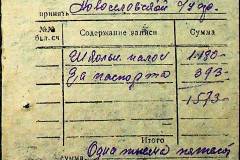 принять Новоселовский
№№ Содержание записи Сумма
бал. сч.
1180-
За паспорта 393-
1573-
Итого
сумма Одна тысяча пятьсот